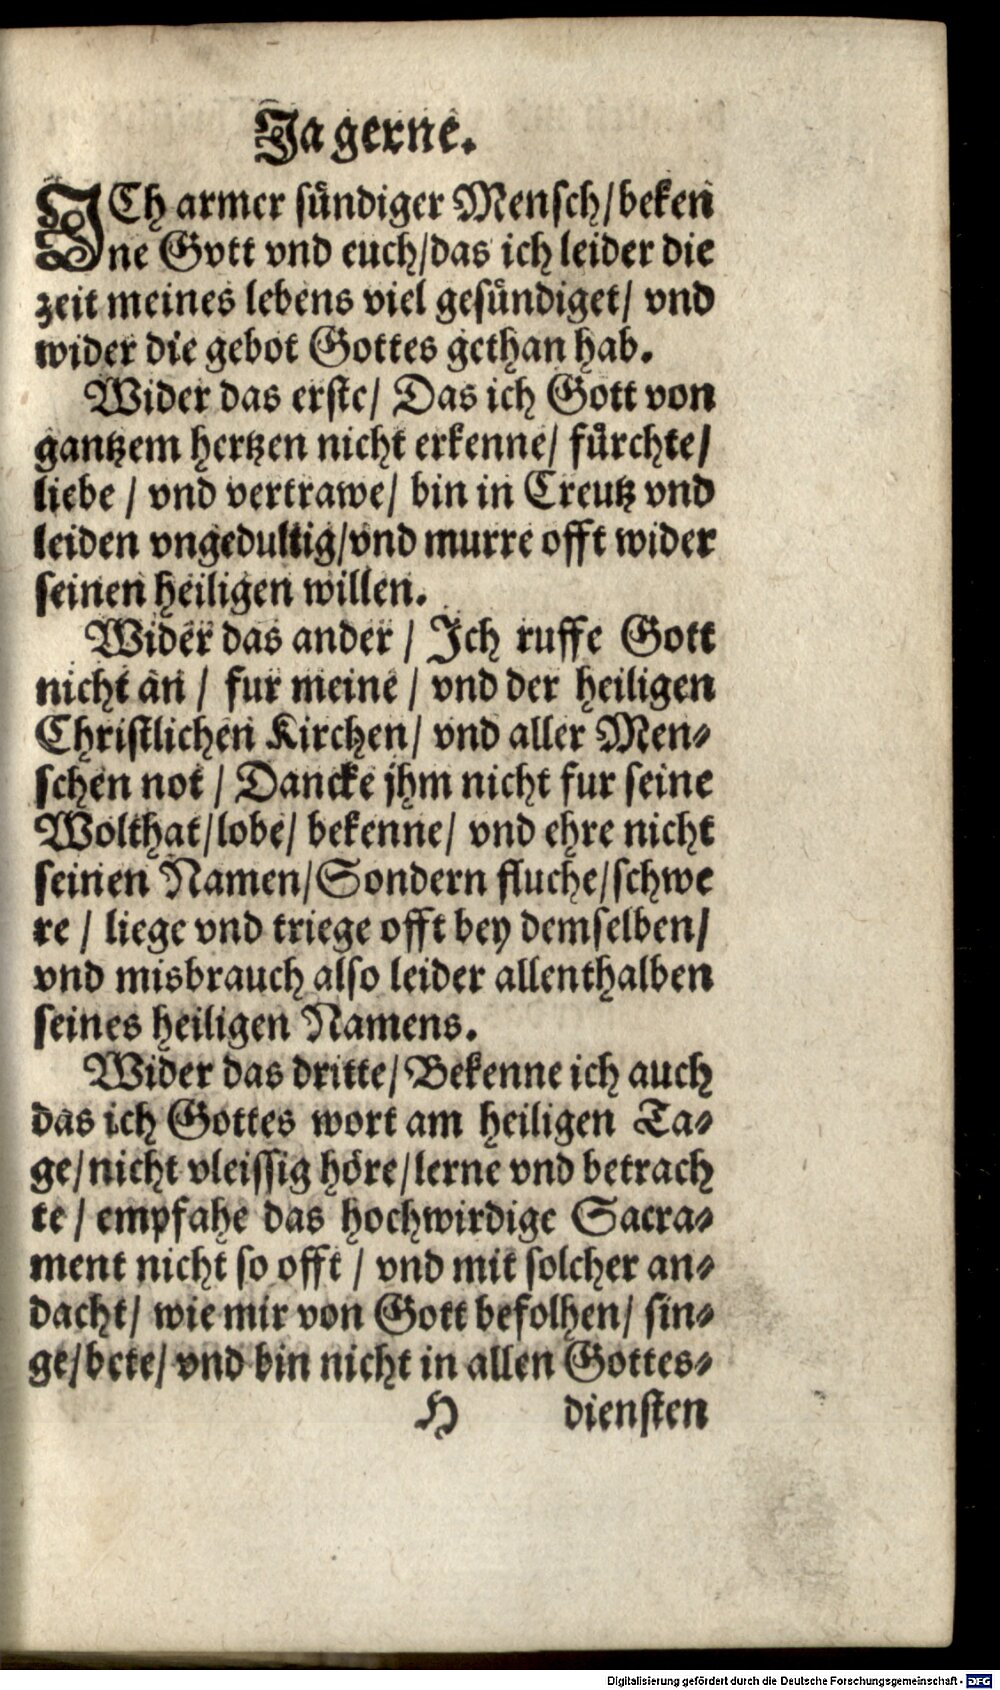 Ja gerne.
ICh armer sündiger Mensch/beken
ne Gott vnd euch/das ich leider die
zeit meines lebens viel gesündiget/ vnd
wider die gebot Gottes gethan hab.
Wider das erste/ Das ich Gott von
gantzem hertzen nicht erkenne/ fürchte/
liebe / vnd vertrawe/ bin in Creutz vnd
leiden vngedultig/vnd murre offt wider
seinen heiligen willen.
Wider das ander / Ich ruffe Gott
nicht an / fur meine / vnd der heiligen
Christlichen Kirchen/ vnd aller Men⸗
schen not / Dancke jhm nicht fur seine
Wolthat/lobe/ bekenne/ vnd ehre nicht
seinen Namen/Sondern fluche/schwe
re / liege vnd triege offt bey demselben/
vnd misbrauch also leider allenthalben
seines heiligen Namens.
Wider das dritte/ Bekenne ich auch
das ich Gottes wort am heiligen Ta⸗
ge/nicht vleissig höre/lerne vnd betrach
te / empfahe das hochwirdige Sacra⸗
ment nicht so offt / vnd mit solcher an⸗
dacht/ wie mir von Gott befolhen/ sin⸗
ge/bete/ vnd bin nicht in allen Gottes⸗
H diensten
Digitalisierung gefördert durch die Deutsche Forschungsgemeinschaft - DFG